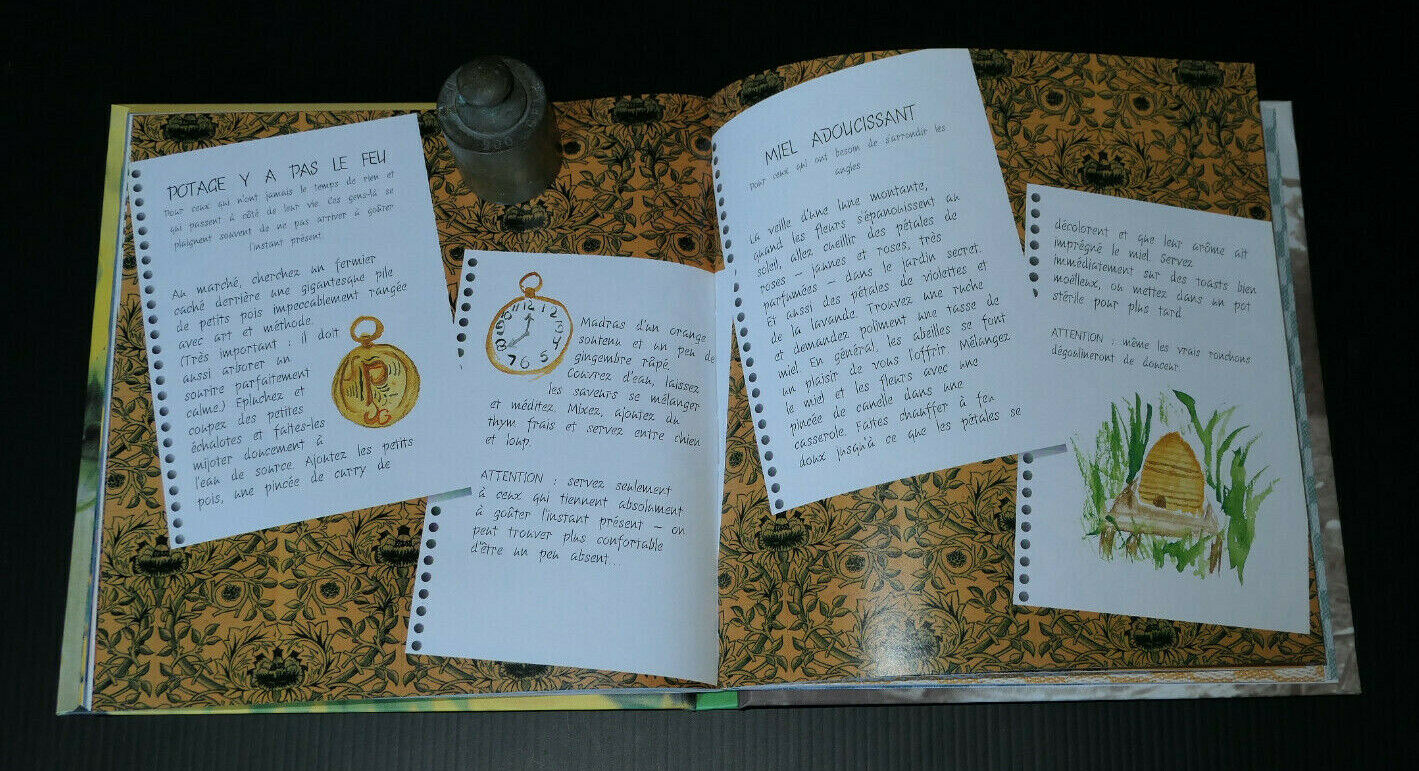 POTAGE Y A PAS LE FEU
Pour ceux qui n'ont jamais le temps de rien et
qui passent à côté de leur vie. Ces gens-là se
plaignent souvent de ne pas arriver à goûter
l'instant présent.
Au marché, cherchez un fermier
caché derrière une gigantesque pile
de petits pois impeccablement rangée
avec art et méthode.
(Très important : il doit
aussi arborer un
sourire parfaitement
calme.) Epluchez et
coupez des petites
échalotes et faites-les
mijoter doucement à
l'eau de source. Ajoutez les petits
pois, une pincée de curry de
12
Madras d'un orange
soutenu et un peu de
gingembre râpé.
Couvrez d'eau, laissez
les saveurs se mélanger
et méditez. Mixez, ajoutez du
thym frais et servez entre chien
et loup.
ATTENTION : servez seulement
à ceux qui tiennent absolument
à goûter l'instant présent – on
peut trouver plus confortable
d'être un peu absent...
MIEL ADOUCISSANT
Pour ceux qui ont besoin de s'arrondir les
angles
La veille d'une lune montante,
quand les fleurs s'épanouissent au
soleil, allez cueillir des pétales de
roses – jaunes et roses, très
parfumées – dans le jardin secret.
Et aussi des pétales de violettes et
de la lavande. Trouvez une ruche
et demandez poliment une tasse de
miel. En général, les abeilles se font
un plaisir de vous l'offrir. Mélangez
le miel et les fleurs avec une
pincée de canelle dans une
casserole. Faites chauffer à feu
doux jusqu'à ce que les pétales se
décolorent et que leur arôme ait
imprégné le miel. Servez
immédiatement sur des toasts bien
moëlleux, ou mettez dans un pot
stérile pour plus tard.
ATTENTION : même les vrais ronchons
dégoulineront de douceur.